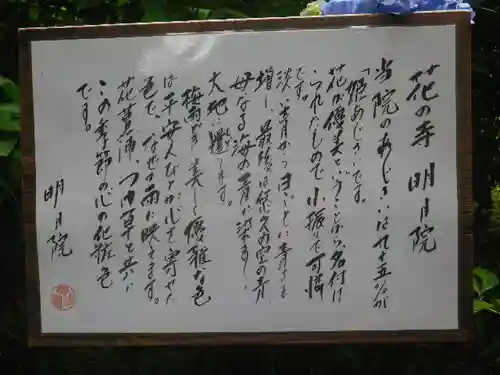 花の寺 明月院
当院のあじさいは九十五%が
「姫あじさい」です。
花が優美ということから名付け
られたもので、小振りで可憐
です。
淡い青から日いちにち青さを
増し、最後は悠久の空の青
母なる海の青に染まり、
大地に還ります。
梅雨どき美しく優雅な色
は平安人びとが心を寄せた
色で、なぜか雨に映えます。
花菖蒲、つゆ草と共に
この季節の心の化粧色
です。
明月院